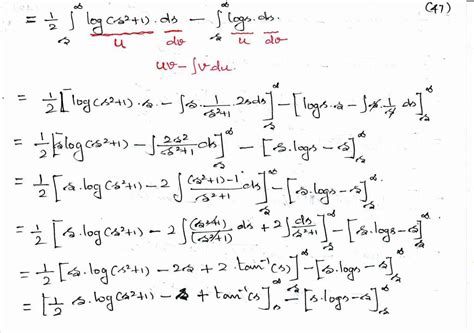 (47)
= 1/2 ∫_s^∞ log(s²+1).ds − ∫_s^∞ logs.ds.
u dv u dv
uv − ∫v du.
= 1/2 [log(s²+1).s − ∫s. 1/(s²+1) .2s ds]_s^∞ − [logs.s − ∫s. 1/s ds]_s^∞
= 1/2 [s log(s²+1) − ∫ 2s²/(s²+1) ds]_s^∞ − [s.logs − s]_s^∞
= 1/2 [s.log(s²+1) − 2∫ ((s²+1)−1)/(s²+1) ds]_s^∞ − [s.logs − s]_s^∞
= 1/2 [s.log(s²+1) − 2∫ (s²+1)/(s²+1) ds + 2∫ ds/(s²+1)]_s^∞ − [s.logs − s]_s^∞
= 1/2 [s.log(s²+1) − 2s + 2 tan⁻¹(s)]_s^∞ − [s.logs − s]_s^∞
= [1/2 s.log(s²+1) − s + tan⁻¹(s)]_s^∞ − [s.logs − s]_s^∞